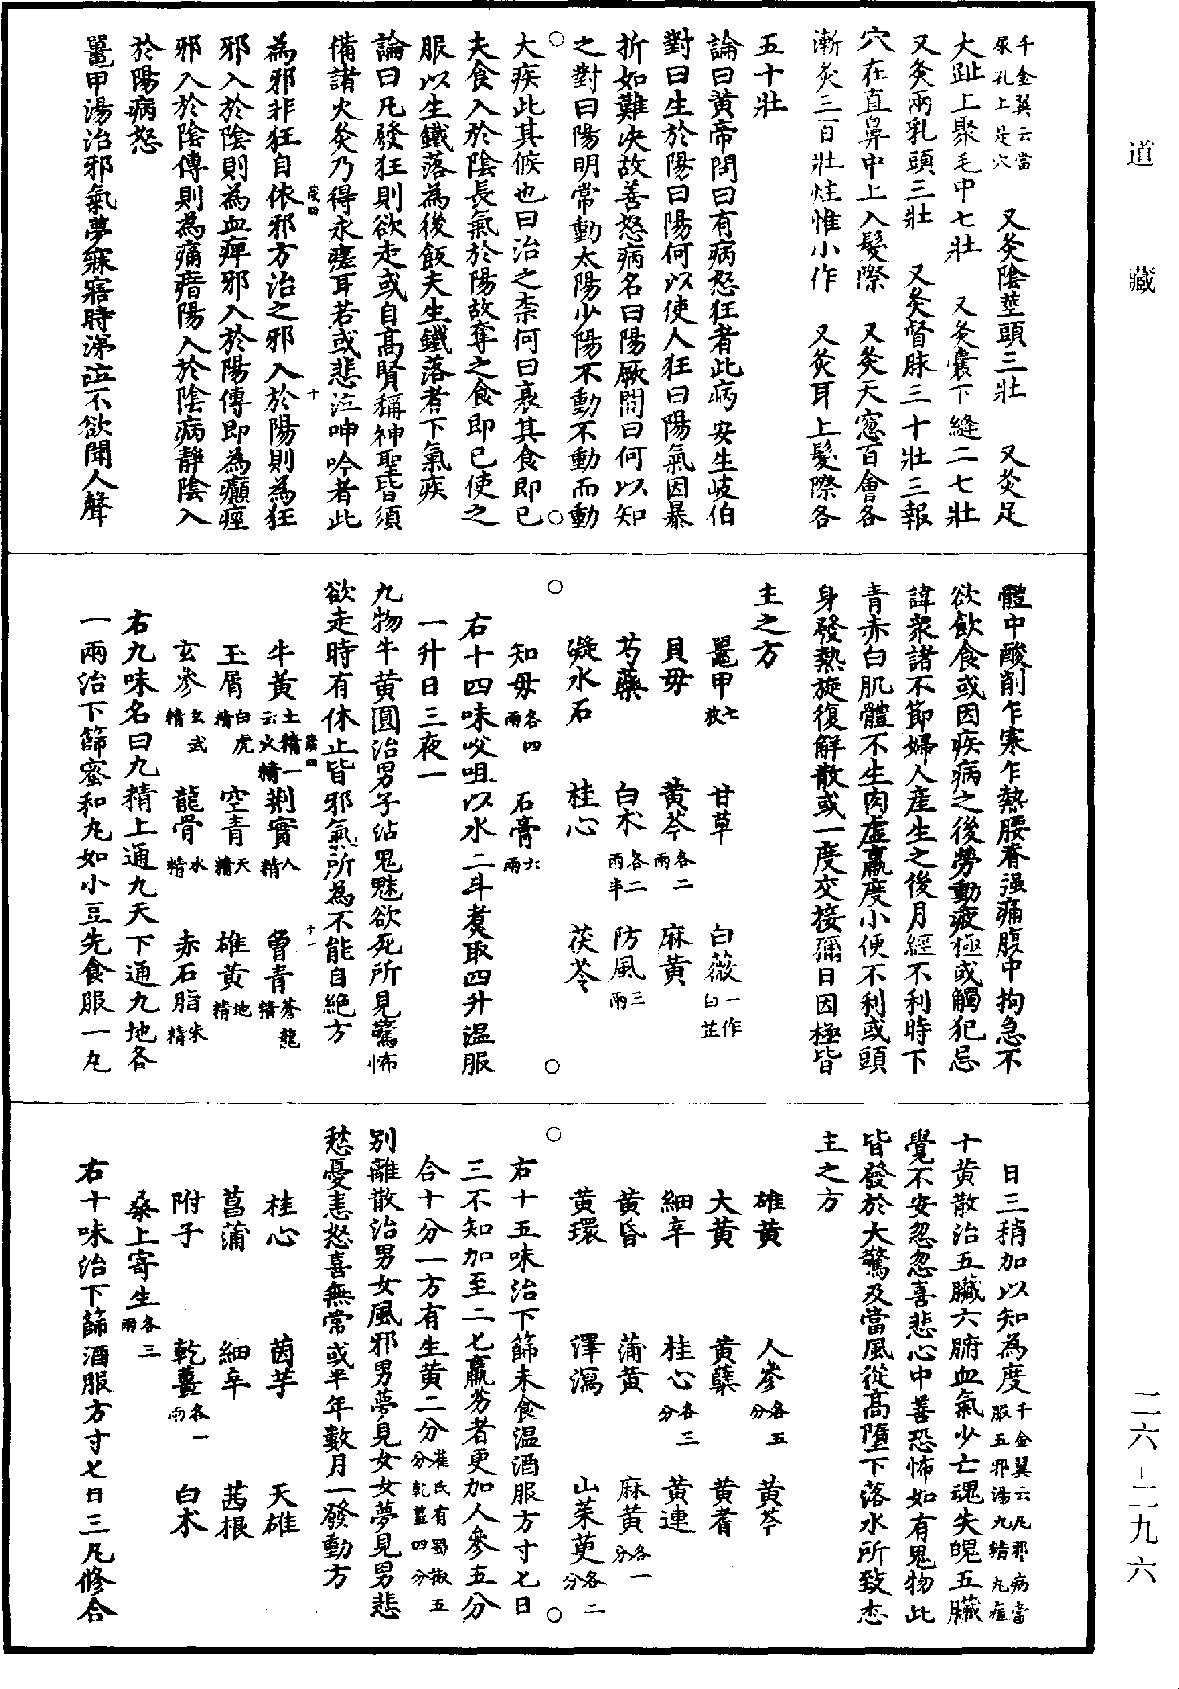 道藏
千金翼云當尿孔上是穴　又灸陰莖頭三壯　又灸足
大趾上聚毛中七壯　又灸囊下縫二七壯
又灸兩乳頭三壯　又灸督脉三十壯三報
穴在直鼻中上入髮際　又灸天窻百會各
漸灸三百壯炷惟小作　又灸耳上髮際各
五十壯
論曰黃帝問曰有病怒狂者此病安生岐伯
對曰生於陽曰陽何以使人狂曰陽氣因暴
折如難決故善怒病名曰陽厥問曰何以知
之對曰陽明常動太陽少陽不動不動而動
大疾此其候也曰治之柰何曰衰其食即已
夫食入於陰長氣於陽故奪之食即已使之
服以生鐵落為後飯夫生鐵落者下氣疾
論曰凡發狂則欲走或自高賢稱神聖皆須
備諸火灸乃得永瘥耳若或悲泣呻吟者此
為邪非狂自依邪方治之邪入於陽則為狂
邪入於陰則為血痺邪入於陽傳即為癲痙
邪入於陰傳則為痛瘖陽入於陰病靜陰入
於陽病怒
鼈甲湯治邪氣夢寐寤時涕泣不欲聞人聲
體中酸削乍寒乍熱腰脊强痛腹中拘急不
欲飲食或因疾病之後勞動疲極或觸犯忌
諱衆諸不節婦人產生之後月經不利時下
青赤白肌體不生肉虛羸瘦小便不利或頭
身發熱旋復解散或一度交接彌日困極皆
主之方
鼈甲七枚　甘草　白薇一作白芷
貝母　黃芩各二兩　麻黃
芍藥　白朮各二兩半　防風三兩
凝水石　桂心　茯苓
知母各四兩　石膏六兩
右十四味㕮咀以水二斗煑取四升溫服
一升日三夜一
九物牛黃圓治男子沾鬼魅欲死所見驚怖
欲走時有休止皆邪氣所為不能自絕方
牛黃土精一云火精　荆實人精　曾青蒼龍精
玉屑白虎精　空青天精　雄黃地精
玄參玄武精　龍骨水精　赤石脂朱精
右九味名曰九精上通九天下通九地各
一兩治下篩蜜和丸如小豆先食服一丸
日三稍加以知為度千金翼云凡邪病當服五邪湯九精丸瘥
十黃散治五臟六腑血氣少亡魂失魄五臟
覺不安忽忽喜悲心中善恐怖如有鬼物此
皆發於大驚及當風從高墮下落水所致悉
主之方
雄黃　人參各五分　黃芩
大黃　黃蘗　黃耆
細辛　桂心各三分　黃連
黃昏　蒲黃　麻黃各一分
黃環　澤瀉　山茱萸各二分
右十五味治下篩未食溫酒服方寸匕日
三不知加至二七羸劣者更加人參五分
合十分一方有生黃二分崔氏有蜀椒五分乾薑四分
別離散治男女風邪男夢見女女夢見男悲
愁憂恚怒喜無常或半年數月一發動方
桂心　茵芋　天雄
菖蒲　細辛　茜根
附子　乾薑各一兩　白朮
桑上寄生各三兩
右十味治下篩酒服方寸匕日三凡修合
二六-二九六